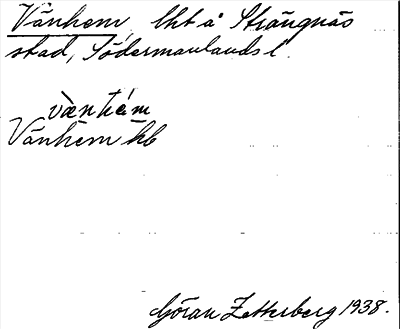 Vänhem, lht å Strängnäs
stad, Södermanlands l.
vänhem
Vänhem hb
Göran Zetterberg 1938.